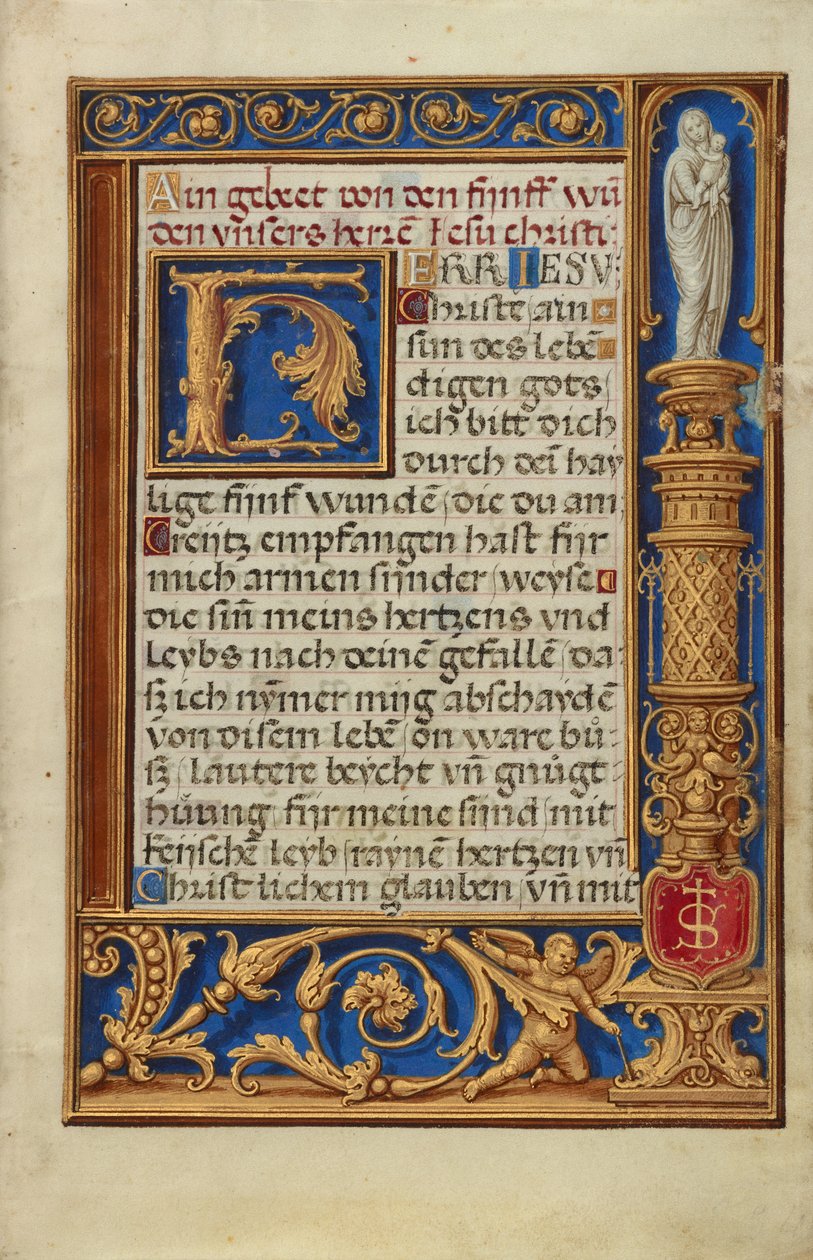 Ain gebeet von den fijnff wū
den vn̄sers herrē Iesu christi:
HERR IESV:
Christe/ain
sun des lebē
digen gots/
ich bitt dich
durch dei̅ hay
lige fijnf wundē/die du am
Creijtz empfangen hast fijr
mich armen sijnder/weyse
die sin̄ meins hertzens vnd
leybs nach deinē gefallē/da:
sz ich nȳmer mijg abschaydē
von disem lebē/on ware bů:
sz/lautere beycht vn̄ gnůgt:
hůung fijr meine sind/mit
keijschē leyb/raynē hertzen vn̄
Christlichem glauben/vn̄ mit
IS